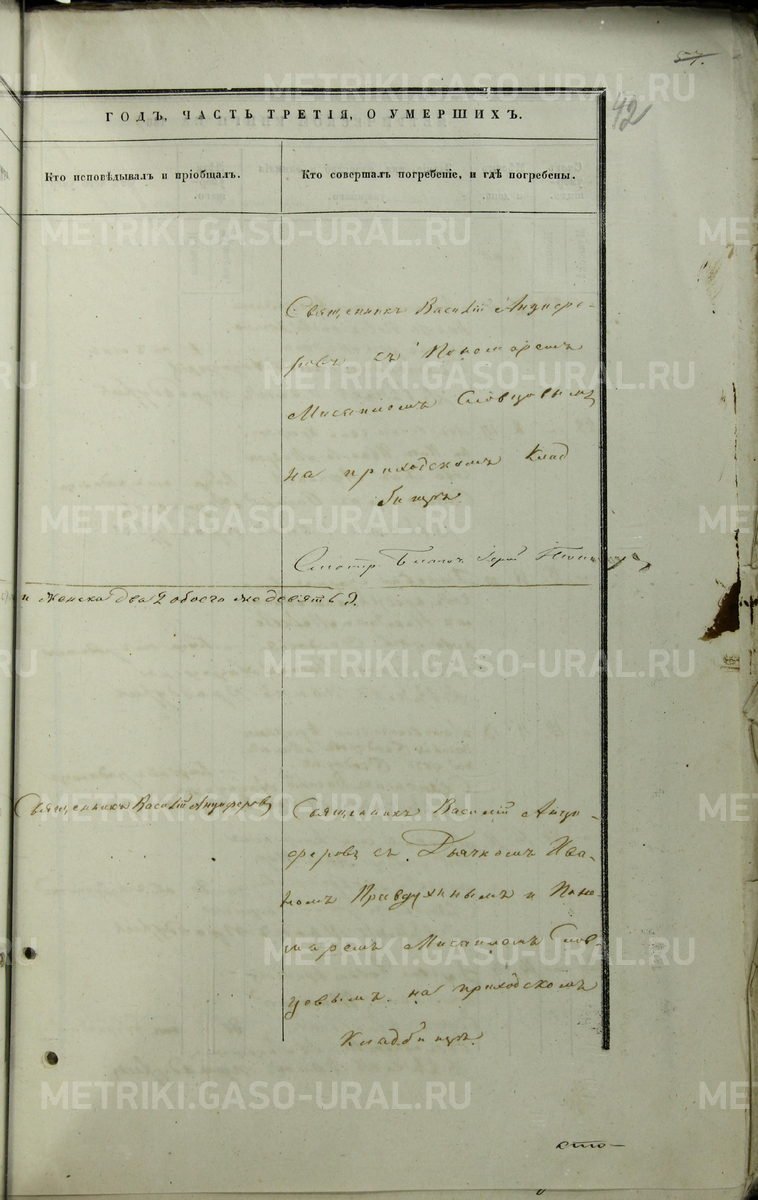 57.
42
ГОДЪ, ЧАСТЬ ТРЕТІЯ, О УМЕРШИХЪ.
Кто исповѣдывалъ и пріобщалъ.
Кто совершалъ погребеніе, и гдѣ погребены.
Священникъ Василій Анцифе-
ровъ съ Пономаремъ
Словцовымъ
на приходскомъ Клад
бищѣ
и женска два 2 обоего девять 9.
Священникъ Василій Анциферовъ
Священникъ Василій Анци-
феровъ съ Дьячкомъ Ива-
номъ и Поно-
маремъ Слов-
цовымъ на приходскомъ
Кладбищѣ.
METRIKI.GASO-URAL.RU